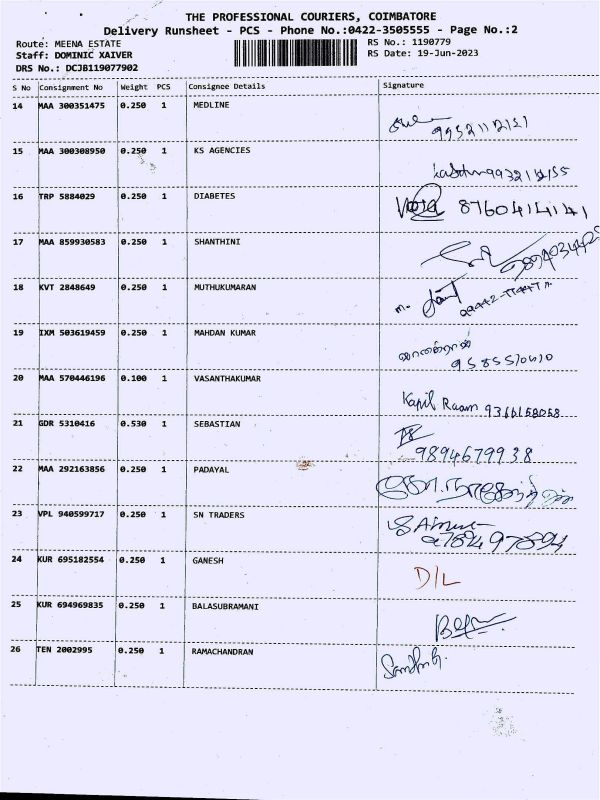 THE PROFESSIONAL COURIERS, COIMBATORE
Delivery Runsheet - PCS - Phone No.:0422-3505555 - Page No.:2
Route: MEENA ESTATE
RS No.: 1190779
Staff: DOMINIC XAIVER
RS Date: 19-Jun-2023
DRS No.: DCJB119077902
S No Consignment No Weight PCS Consignee Details Signature
14 MAA 300351475 0.250 1 MEDLINE
15 MAA 300308950 0.250 1 KS AGENCIES
16 TRP 5884029 0.250 1 DIABETES 8760414141
17 MAA 859930583 0.250 1 SHANTHINI
18 KVT 2848649 0.250 1 MUTHUKUMARAN
19 IXM 503619459 0.250 1 MAHDAN KUMAR
20 MAA 570446196 0.100 1 VASANTHAKUMAR Kapil Raam
21 GDR 5310416 0.530 1 SEBASTIAN
9894679938
22 MAA 292163856 0.250 1 PADAYAL
23 VPL 940599717 0.250 1 SN TRADERS
24 KUR 695182554 0.250 1 GANESH D/L
25 KUR 694969835 0.250 1 BALASUBRAMANI
26 TEN 2002995 0.250 1 RAMACHANDRAN